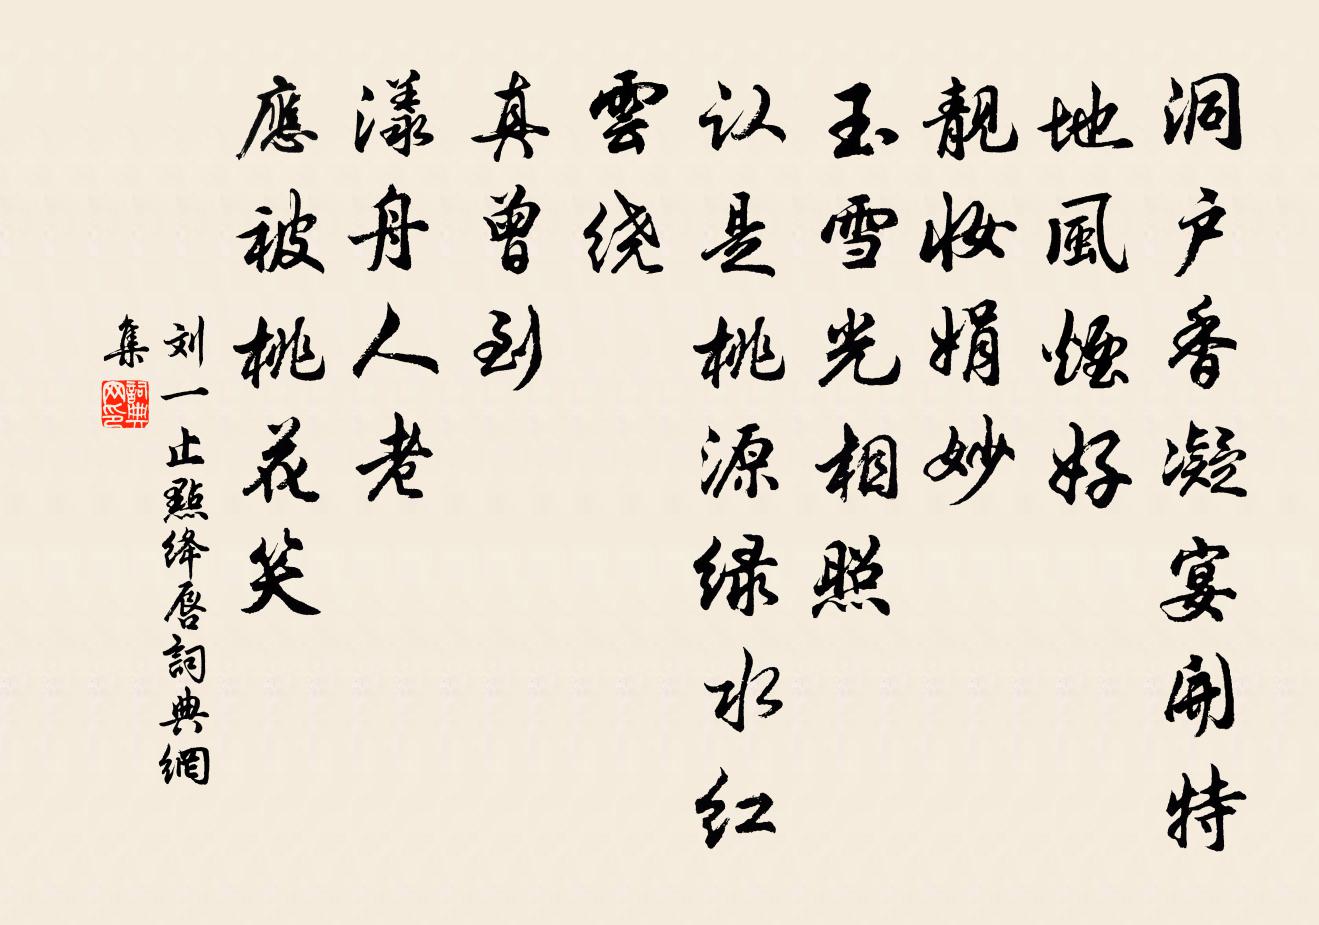 洞户香凝宴開特
地風煙好
靚妝娟妙
玉雪光相照
认是桃源绿水红
雲绕
真曾到
漾舟人老
應被桃花笑
刘一止點绛唇詞典網
集
詞典网印